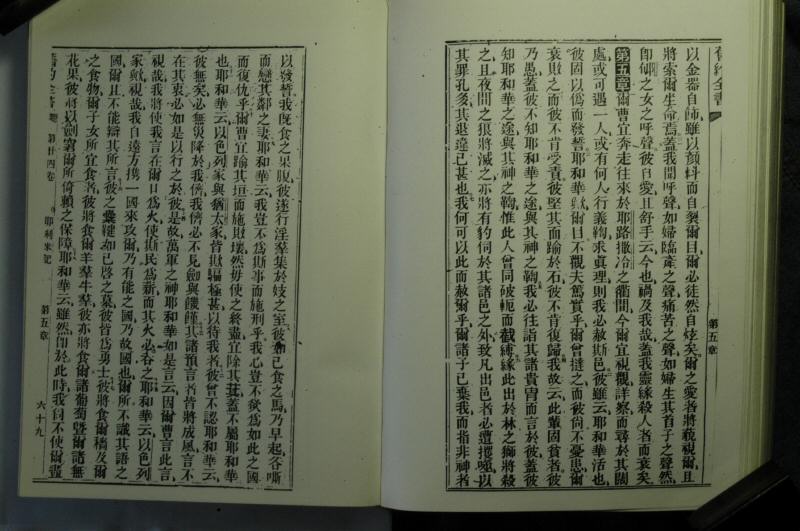 舊約全書
第五章
以金器自飾雖以顏料而自裂爾目爾必徒然自炫矣爾之愛者將藐視爾且
將索爾生命焉蓋我聞呼聲如婦臨產之聲痛苦之聲如婦生其首子之聲然
卽 之女之呼聲彼自愛且舒手云今也禍及我哉蓋我靈緣殺人者而衰矣
第五章爾曹宜奔走往來於耶路撒冷之衢間今爾宜視觀詳察而尋於其闊
處或可遇一人或有何人行義鞫求眞理則我必赦斯邑彼雖云耶和華活也
彼固以僞而發誓耶和華歟爾目不觀夫篤實乎爾曾撻之而彼尙不憂患爾
衰敗之而彼不肯受責彼堅其面踰於石彼不肯復歸我故云此輩固貧者彼
乃愚蓋彼不知耶和華之途與其神之鞫我必往詣其諸貴冑而言於彼蓋彼
知耶和華之途與其神之鞫惟此人曾同破軛而截縛緣此出於林之獅將殺
之且夜間之狼將滅之亦將有豹伺於其諸邑之外致凡出邑者必遭 噬以
其罪孔多其退違已甚也我何可以此而赦爾乎爾諸子已棄我而指非神者
以發誓我旣食之果腹彼遂行淫羣集於妓之室彼如已食之馬乃早起各嘶
而戀其鄰之妻耶和華云我豈不爲斯事而施刑乎我心豈不欲爲如此之國
而復仇乎爾曹宜踰其垣而施敗壞然毋使之終盡宜除其 蓋不屬耶和華
也耶和華云以色列家與猶太家皆欺騙極甚以待我者彼曾不認耶和華云
彼無矣必無災降於我儕我儕必不見劍與饑饉其諸預言者皆將成風言不
在其衷必如是以行之於彼是故萬軍之神耶和華如是言云因爾曹言此言
視哉我將使我言在爾口爲火使斯民爲薪而其火必吞之耶和華云以色列
家歟視哉我自遠方攜一國來攻爾乃有能之國乃故國也爾所不識其語之
國爾且不能辯其所言彼之櫜鞬如已啓之墓彼皆爲勇士彼將食爾穡及爾
之食物爾子女所宜食者彼將食爾羊羣牛羣彼亦將食爾諸葡萄曁爾諸無
花果彼將以劍窮爾所倚賴之保障耶和華云雖然卽於此時我尙不使爾盡
舊約全書
第廿四卷
耶利米記
第五章
六十九